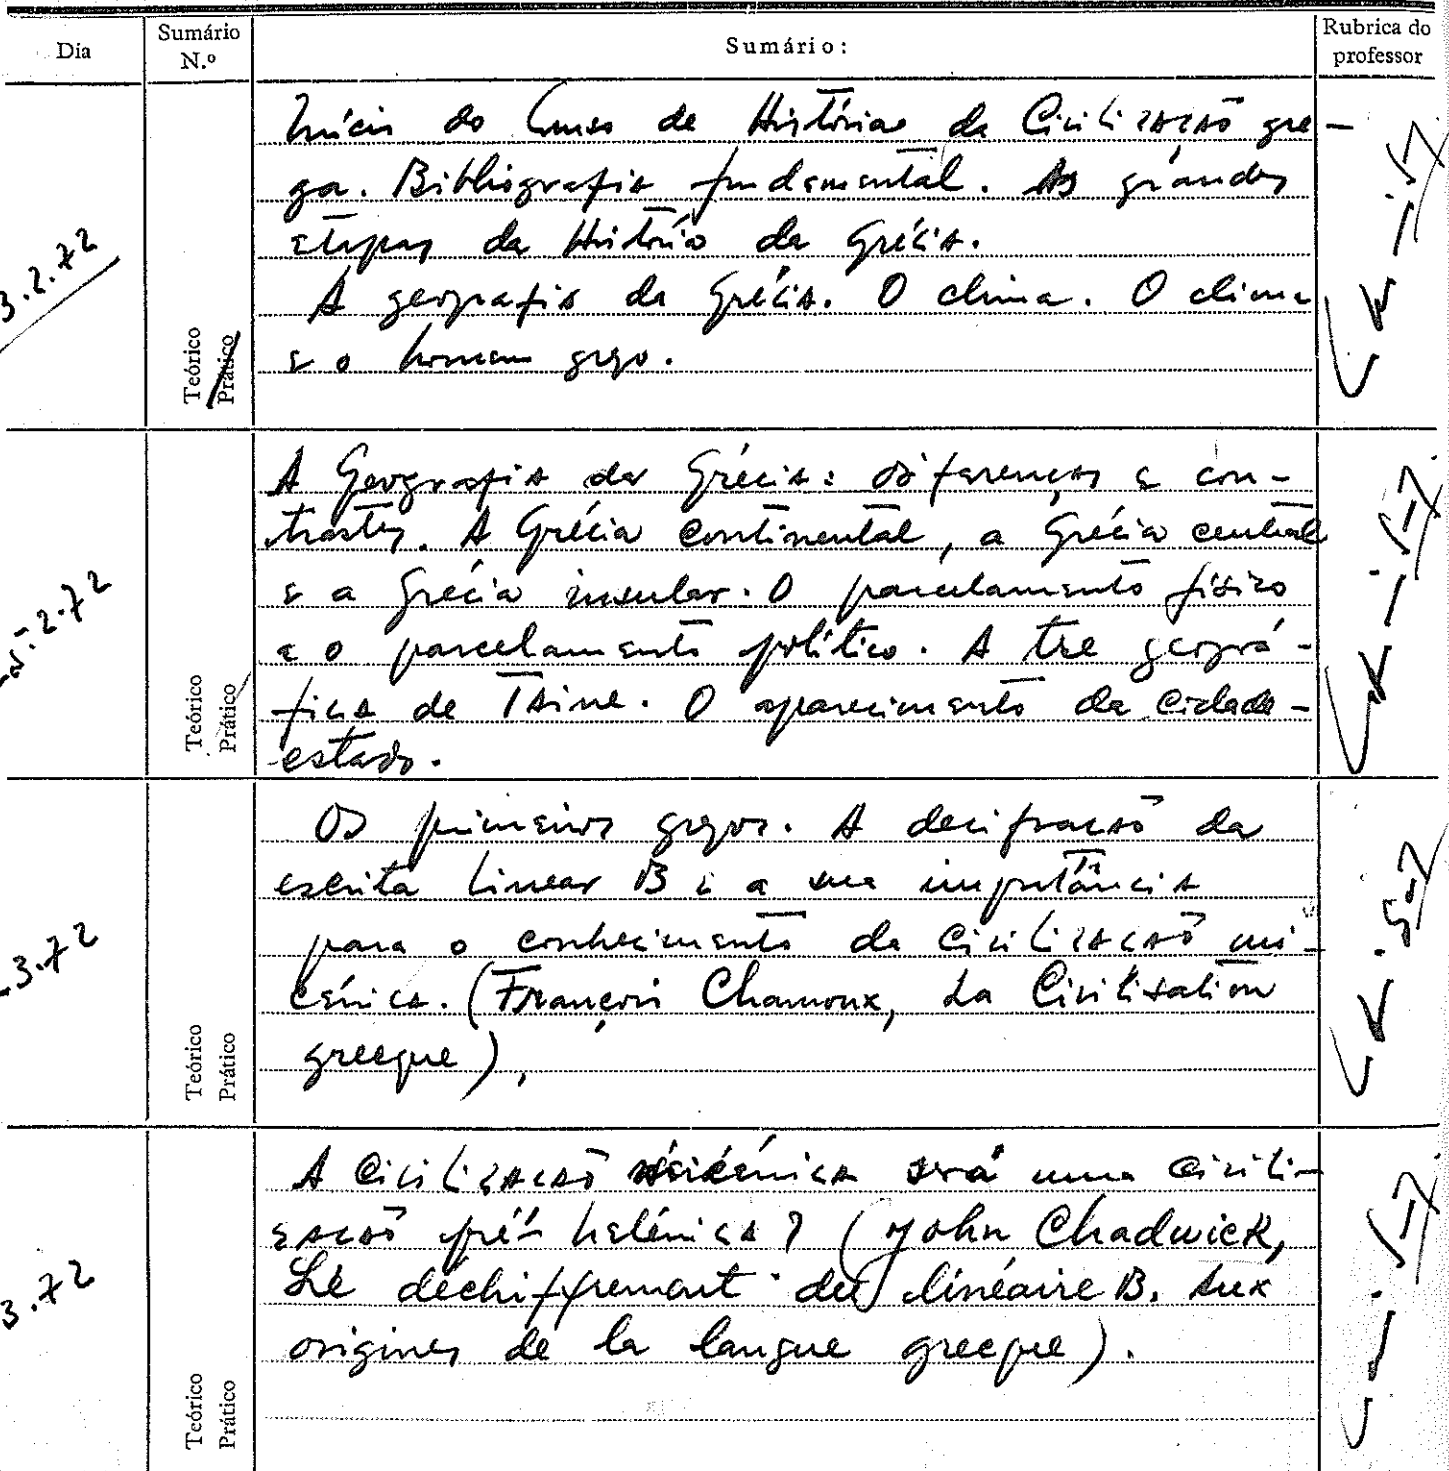 Dia
Sumário N.º
Sumário:
Rubrica do professor
3.2.72
Teórico
Prático
Início do Curso de História da Civilização gre-
ga. Bibliografia fundamental. As grandes
etapas da História da Grécia.
A geografia da Grécia. O clima. O clima
e o homem grego.
2.72
Teórico
Prático
A Geografia da Grécia: diferenças e con-
trastes. A Grécia continental, a Grécia central
e a Grécia insular. O parcelamento físico
e o parcelamento político. A tese geográ-
fica de Taine. O aparecimento da cidade-
estado.
3.72
Teórico
Prático
Os primeiros gregos. A decifração da
escrita linear B e a sua importância
para o conhecimento da civilização mi-
cénica. (François Chamoux, La Civilisation
grecque).
3.72
Teórico
Prático
A civilização micénica será uma civili-
zação pré-helénica? (John Chadwick,
Le déchiffrement du linéaire B. Aux
origines de la langue grecque).